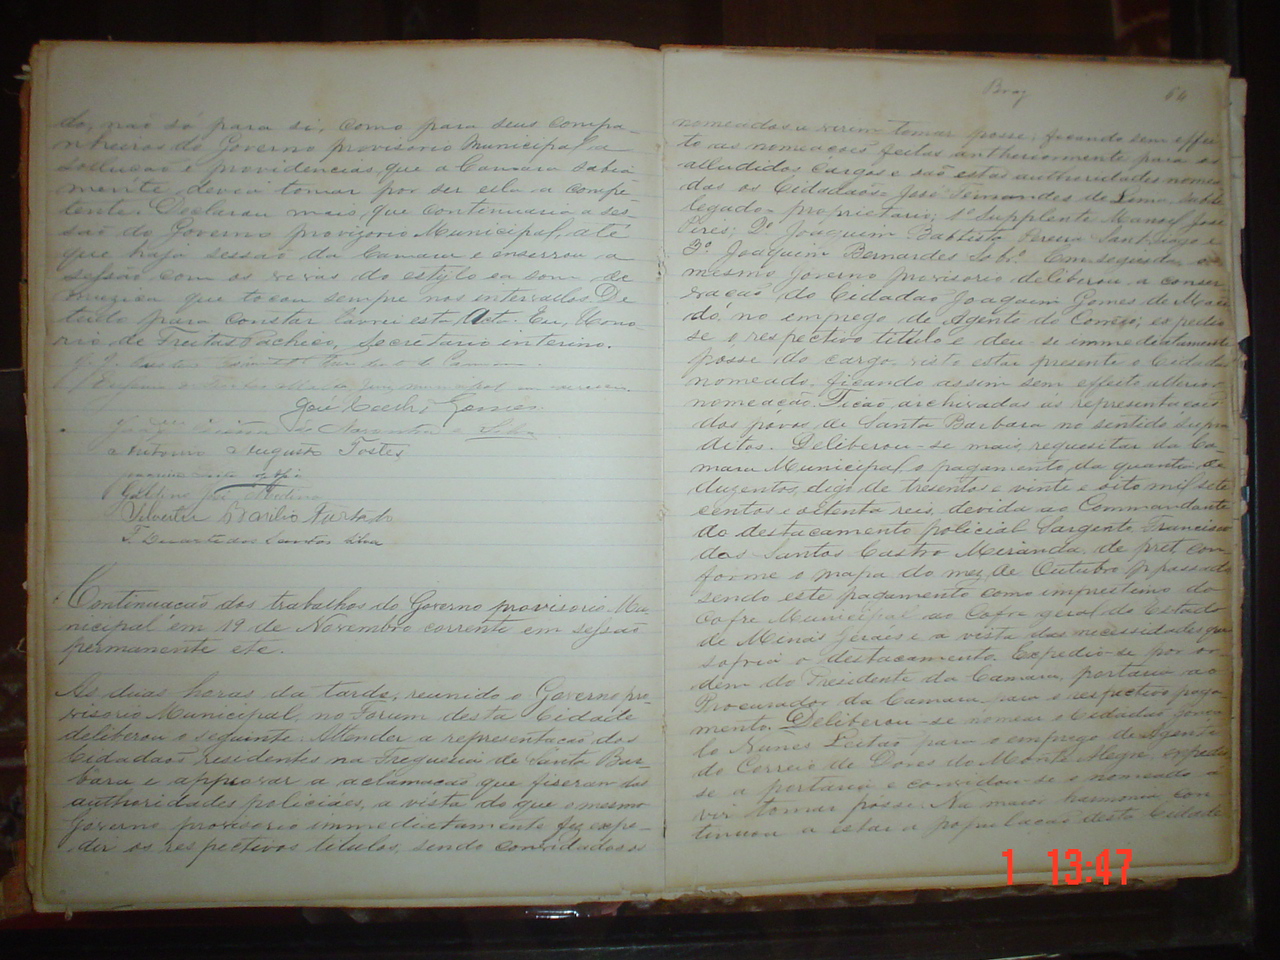 do, não só para si, como para seus compa-
nheiros do Governo provisorio Municipal, a
sollução e providencias, que a Camara sabia
mente devia tomar por ser ella a compe-
tente. Declarou mais, que continuaria a ses-
são do Governo provizorio Municipal, até
que haja sessão da Camara e encerrou a
sessão com os vivas do estylo ao som de
muzica que tocou sempre nos intervallos. De
tudo para constar lavrei esta Acta. Eu, Hono-
rio de Freitas Pacheco, Secretario interino.
José Coelho Gomes
Antonio Augusto Fostes
Galdino José
Silvestre Basilio Furtado
F. Duarte dos Santos Silva
Continuação dos trabalhos do Governo provisorio Mu-
nicipal em 19 de Novembro corrente em sessão
permanente etc.
As duas horas da tarde, reunido o Governo pro-
visorio Municipal, no Forum desta Cidade
deliberou o seguinte. Attender a representação dos
Cidadãos residentes na Freguezia de Santa Bar-
bara e approvar a acclamação que fiseram das
authoridades policiaes, a vista do que o mesmo
Governo provisorio immediatamente fez expe-
dir os respectivos titulos, sendo convidados os
64
nomeados a virem tomar posse, ficando sem effei-
to as nomeações feitas anteriormente para os
alludidos cargos e são estas authoridades nomea-
das os Cidadãos José Fernandes de Lemo, Subde
legado proprietario; 1º Supplente Manoel José
Pires; 2º Joaquim Baptista Pereira Sant Iago e
3º Joaquim Bernardes Sobrº. Em seguida o
mesmo Governo provisorio deliberou a conser-
vação do Cidadão Joaquim Gomes de Mace
do, no emprego de Agente do Correio; expedio
se o respectivo titulo e deu se immediatamente
posse do cargo, visto estar presente o Cidadão
nomeado, ficando assim sem effeito ulterior
nomeação. Ficão archivadas as representações
dos povos de Santa Barbara no sentido supra
ditos. Deliberou-se mais, requisitar da Ca-
mara Municipal, o pagamento da quantia de
duzentos, digo de tresentos e vinte e oito mil sete
centos e oitenta reis, devida ao Commandante
do destacamento policial Sargento Francisco
dos Santos Castro Miranda, de pret, con
forme o mapa do mez de Outubro pp passado
sendo este pagamento como imprestimo do
Cofre Municipal ao Cofre geral do Estado
de Minas Geraes e a vista das necessidades que
sofria o destacamento. Expedio-se por or-
dem do Presidente da Camara, portaria ao
Procurador da Camara para o respectivo paga
mento. Deliberou-se nomear o Cidadão
Nunes Leitão para o emprego de Agente
do Correio de Dores do Monte Alegre, expedio
se a portaria e convidou-se o nomeado a
vir tomar posse. Na maior harmonia con
tinuou a estar a população desta Cidade
1 13:47